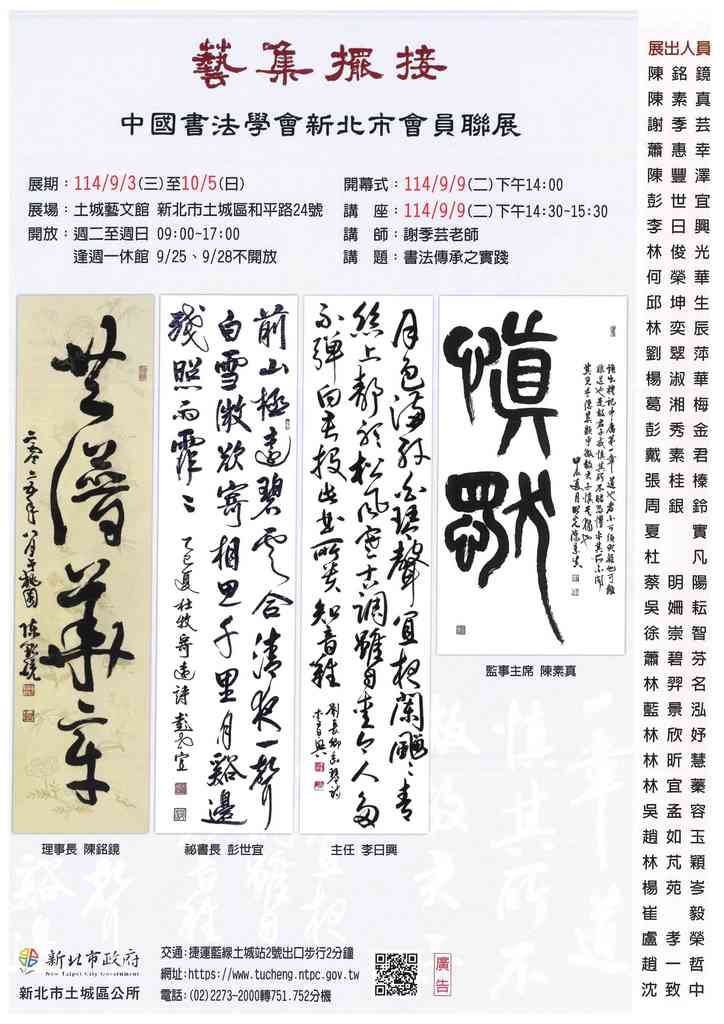 藝集擺接
中國書法學會新北市會員聯展
展期：114/9/3(三)至10/5(日)
展場：土城藝文館 新北市土城區和平路24號
開放：週二至週日 09:00~17:00
逢週一休館 9/25、9/28不開放
開幕式：114/9/9(二)下午14:00
講　座：114/9/9(二)下午14:30-15:30
講　師：謝季芸老師
講　題：書法傳承之實踐
前山極遠碧雲合清夜一聲
白雪微欲寄相思千里月谿邊
殘照雨霏霏
乙巳夏杜牧寄遠詩 彭世宜
慎獨
理事長 陳銘鏡
祕書長 彭世宜
主任 李日興
監事主席 陳素真
展出人員
陳銘鏡
陳素真
謝季芸
蕭惠幸
陳豐澤
彭世宜
李日興
林俊光
何榮華
邱坤生
林奕辰
劉翠萍
楊淑華
葛湘梅
彭秀金
戴素君
張桂榛
周銀鈴
夏　實
杜　凡
蔡明陽
吳姍耘
徐崇智
蕭碧芬
林羿名
藍景泓
林欣妤
林昕慧
林宜蓁
吳孟容
趙如玉
林芃穎
楊苑岑
崔　毅
盧孝榮
趙一哲
沈致中
新北市政府
New Taipei City Government
新北市土城區公所
交通：捷運藍線土城站2號出口步行2分鐘
網址：https://www.tucheng.ntpc.gov.tw
電話：(02)2273-2000轉751.752分機
廣告